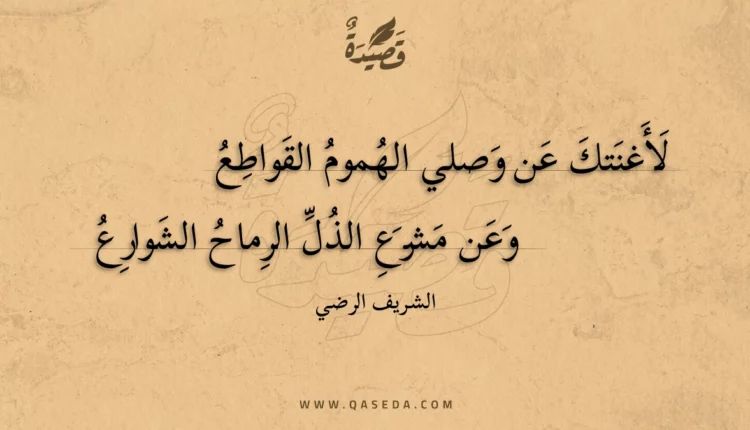 قَصِيْدَةٌ
لَأَغنَتكَ عَن وَصلي الهُمومُ القَواطِعُ
وَعَن مَشرَعِ الذُلِّ الرِماحُ الشَوارِعُ
الشريف الرضي
WWW.QASEDA.COM